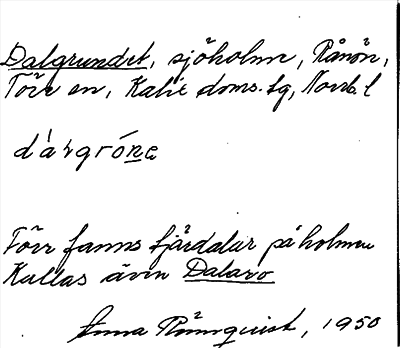 Dalgrundet, sjöholme, Rånön,
Töre sn, Kalix doms.sg, Norrb. l
Förr fanns fjärdalar på holmen
Kallas även Dalarö
Anna Rönnquist, 1950